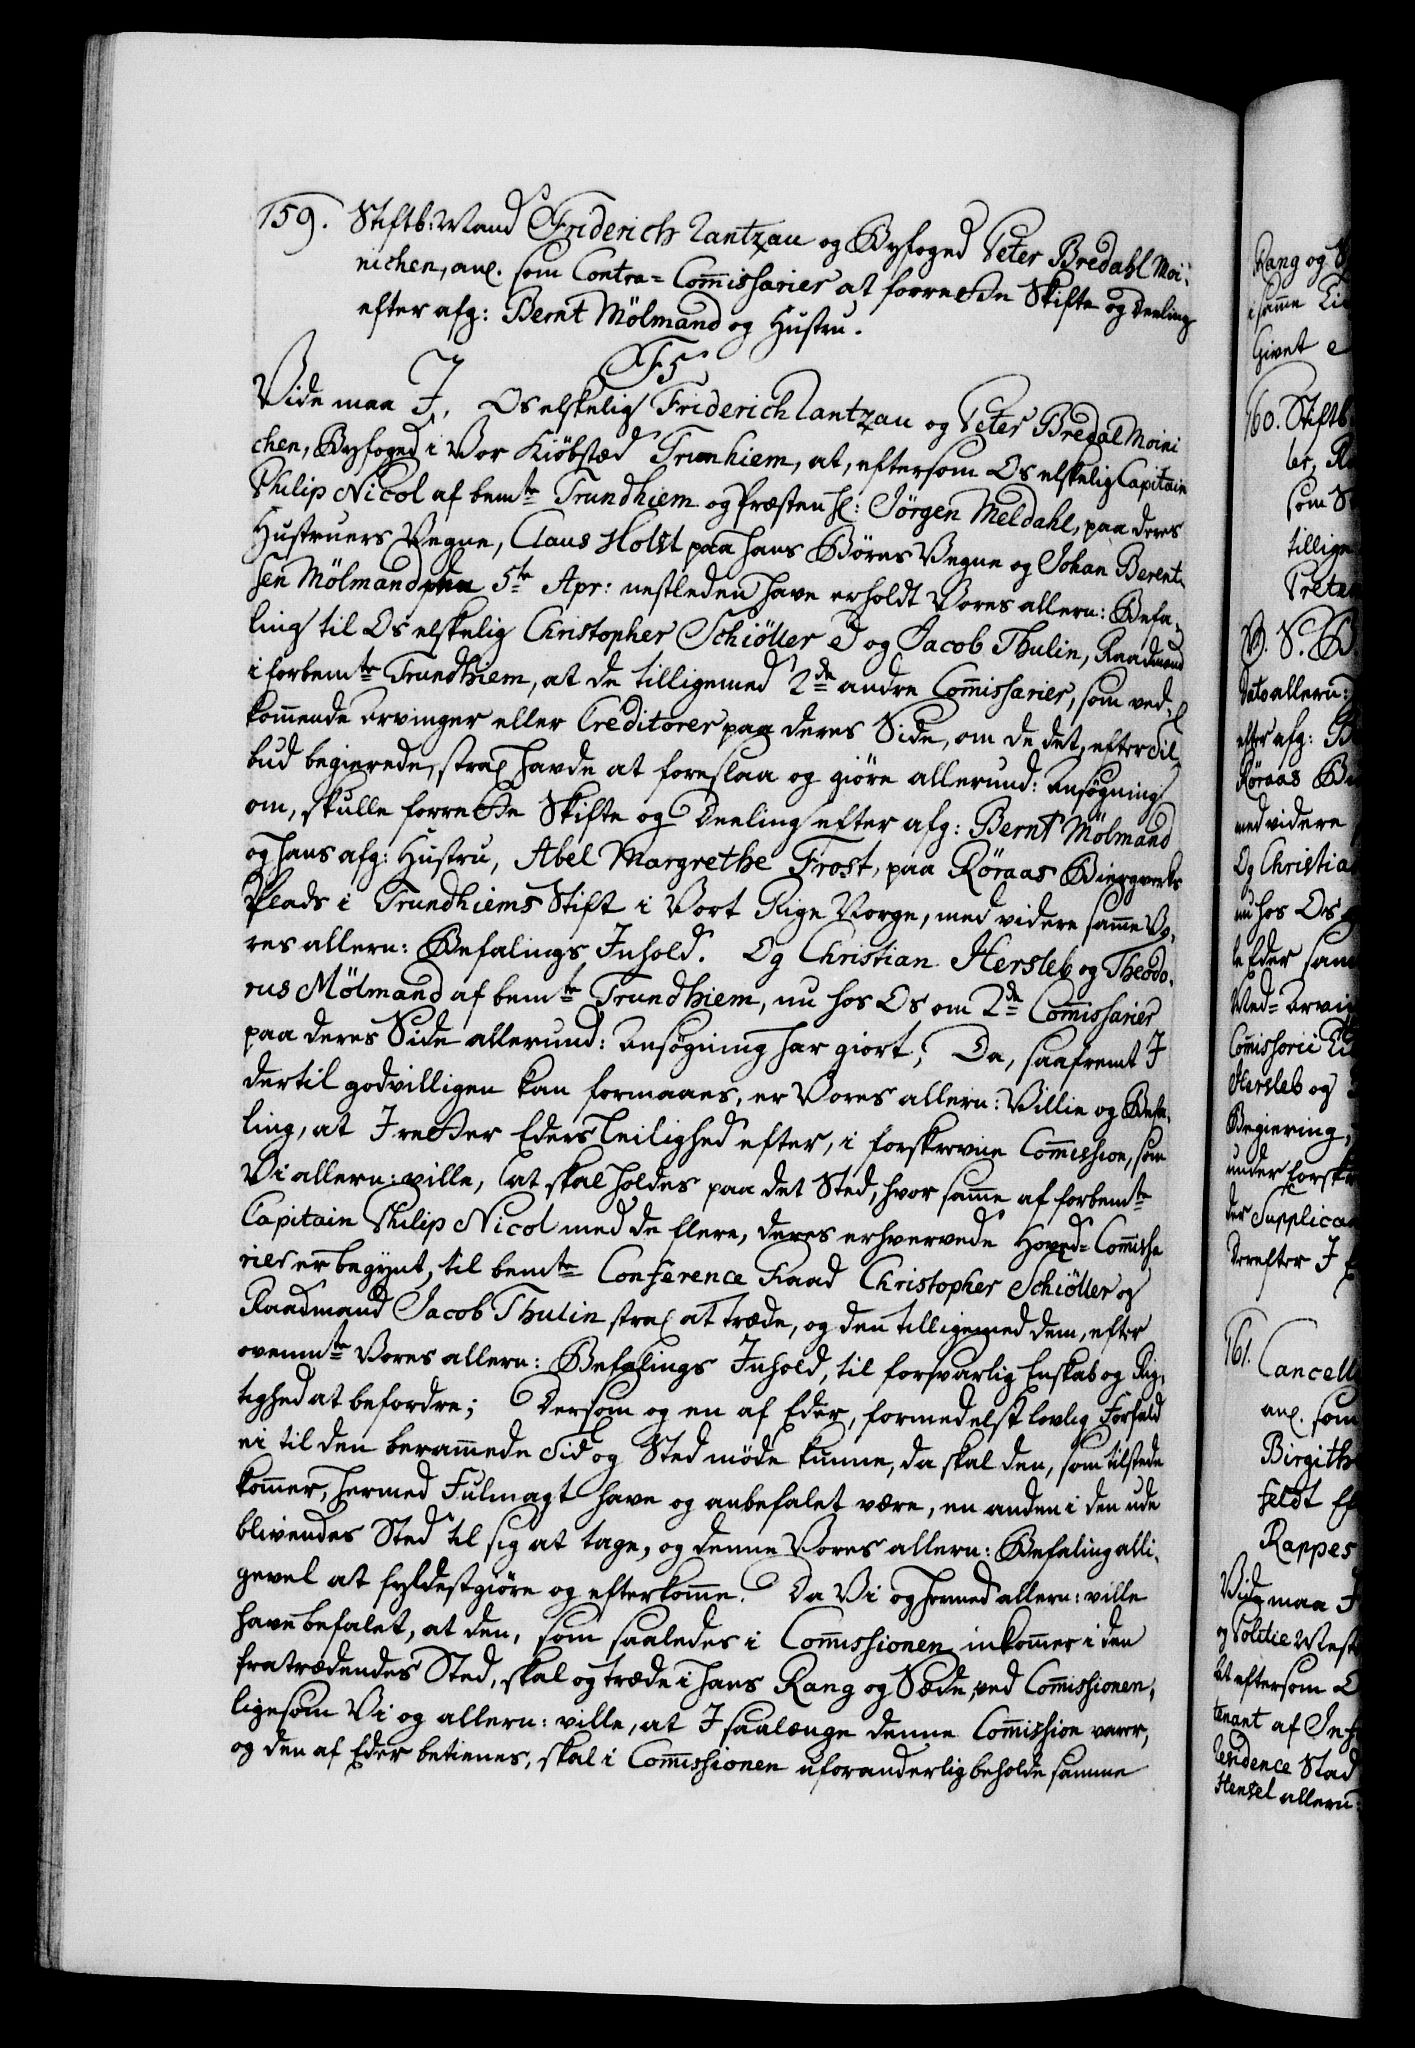 159. Stiftb: Mand Friderich Rantzau og Byfoged Peter Bredahl Moi-
nichen, anl. som Contra=Commissarier at forrette Skifte og Deeling
efter afg: Bernt Mölmand og Hustru.
F5
Vide maa I, Os elskelig Friderich Rantzau og Peter Bredal Moini
chen, Byfoged i Vor Kiöbstæd Trunhiem, at, eftersom Os elskelig Capitain
Philip Nicol af bemte Trundhiem og Præsten hl: Jörgen Meldahl, paa deres
Hustruers Vegne, Claus Holst paa hans Börns Vegne og Johan Berent-
sen Mölmand 5te Apr: nestleden have erholdt Vores allern: Befa-
ling til Os elskelig Christopher Schiöller og Jacob Thulin, Raadmand
i forbemte Trundhiem, at de tilligemed 2de andre Commissarier, som ved-
kommende Arvinger eller Creditorer paa deres Side, om de det, efter Til-
bud begierede, strax havde at foreslaa og giöre allerund: Ansögning
om, skulle forrette Skifte og Deeling efter afg: Bernt Mölmand
og hans afg: Hustru, Abel Margrethe Frost, paa Röraas Biergverks
Plads i Trundhiems Stift i Vort Rige Norge, med videre samme Vo-
res allern: Befalings Inhold. Og Christian Hersleb og Theodo-
rus Mölmand af bemte Trundhiem, nu hos Os om 2de Commissarier
paa deres Side allerund: Ansögning har giort; Da, saafremt I
dertil godvilligen kan formaaes, er Vores allern: Villie og Befa-
ling, at I retter Eders Leilighed efter, i forskrevne Commission, som
Vi allern: ville, lat skal holdes paa det Sted, hvor samme af forbemte
Capitain Philip Nicol med de flere, deres erhvervede Hoved=Commissa
rier er begynt, til bemte Conference Raad Christopher Schiöller og
Raadmand Jacob Thulin strax at træde, og den tilligemed dem, efter
ovenmte Vores allern: Befalings Inhold, til forsvarlig Enskab og Rig-
tighed at befordre; Dersom og en af Eder, formedelst lovlig Forfald
ei til den berammede Tid og Sted möde kunne, da skal den, som tilstede
kommer, hermed Fulmagt have og anbefalet være, en anden i den ude
blivendes Sted til sig at tage, og denne Vores allern: Befaling alli-
gevel at fyldestgiöre og efterkomme. Da Vi og hermed allern: ville
have befalet, at den, som saaledes i Commissionen inkommer i den
fratrædendes Sted, skal og træde i hans Rang og Sæde, ved Commissionen,
ligesom Vi og allern: ville, at I saalænge denne Commission varer,
og den af Eder betienes, skal i Commissionen uforanderlig beholde samme
Rang og
i samme
Givet
160. Stiftb
ler,
som
tillige
Preten
Dato allern:
efter afg:
Röraas
med videre
Og Christia
nu hos Os
Eder sam
Commissorii
Hersleb og
Begiering,
under forskr
der Supplican
Derefter I
161. Cancell
anl. som
Birgith
feldt
Rappes
Vide maa I
og Politie
At eftersom
tenant af
Residence Stad
Hensel allern: